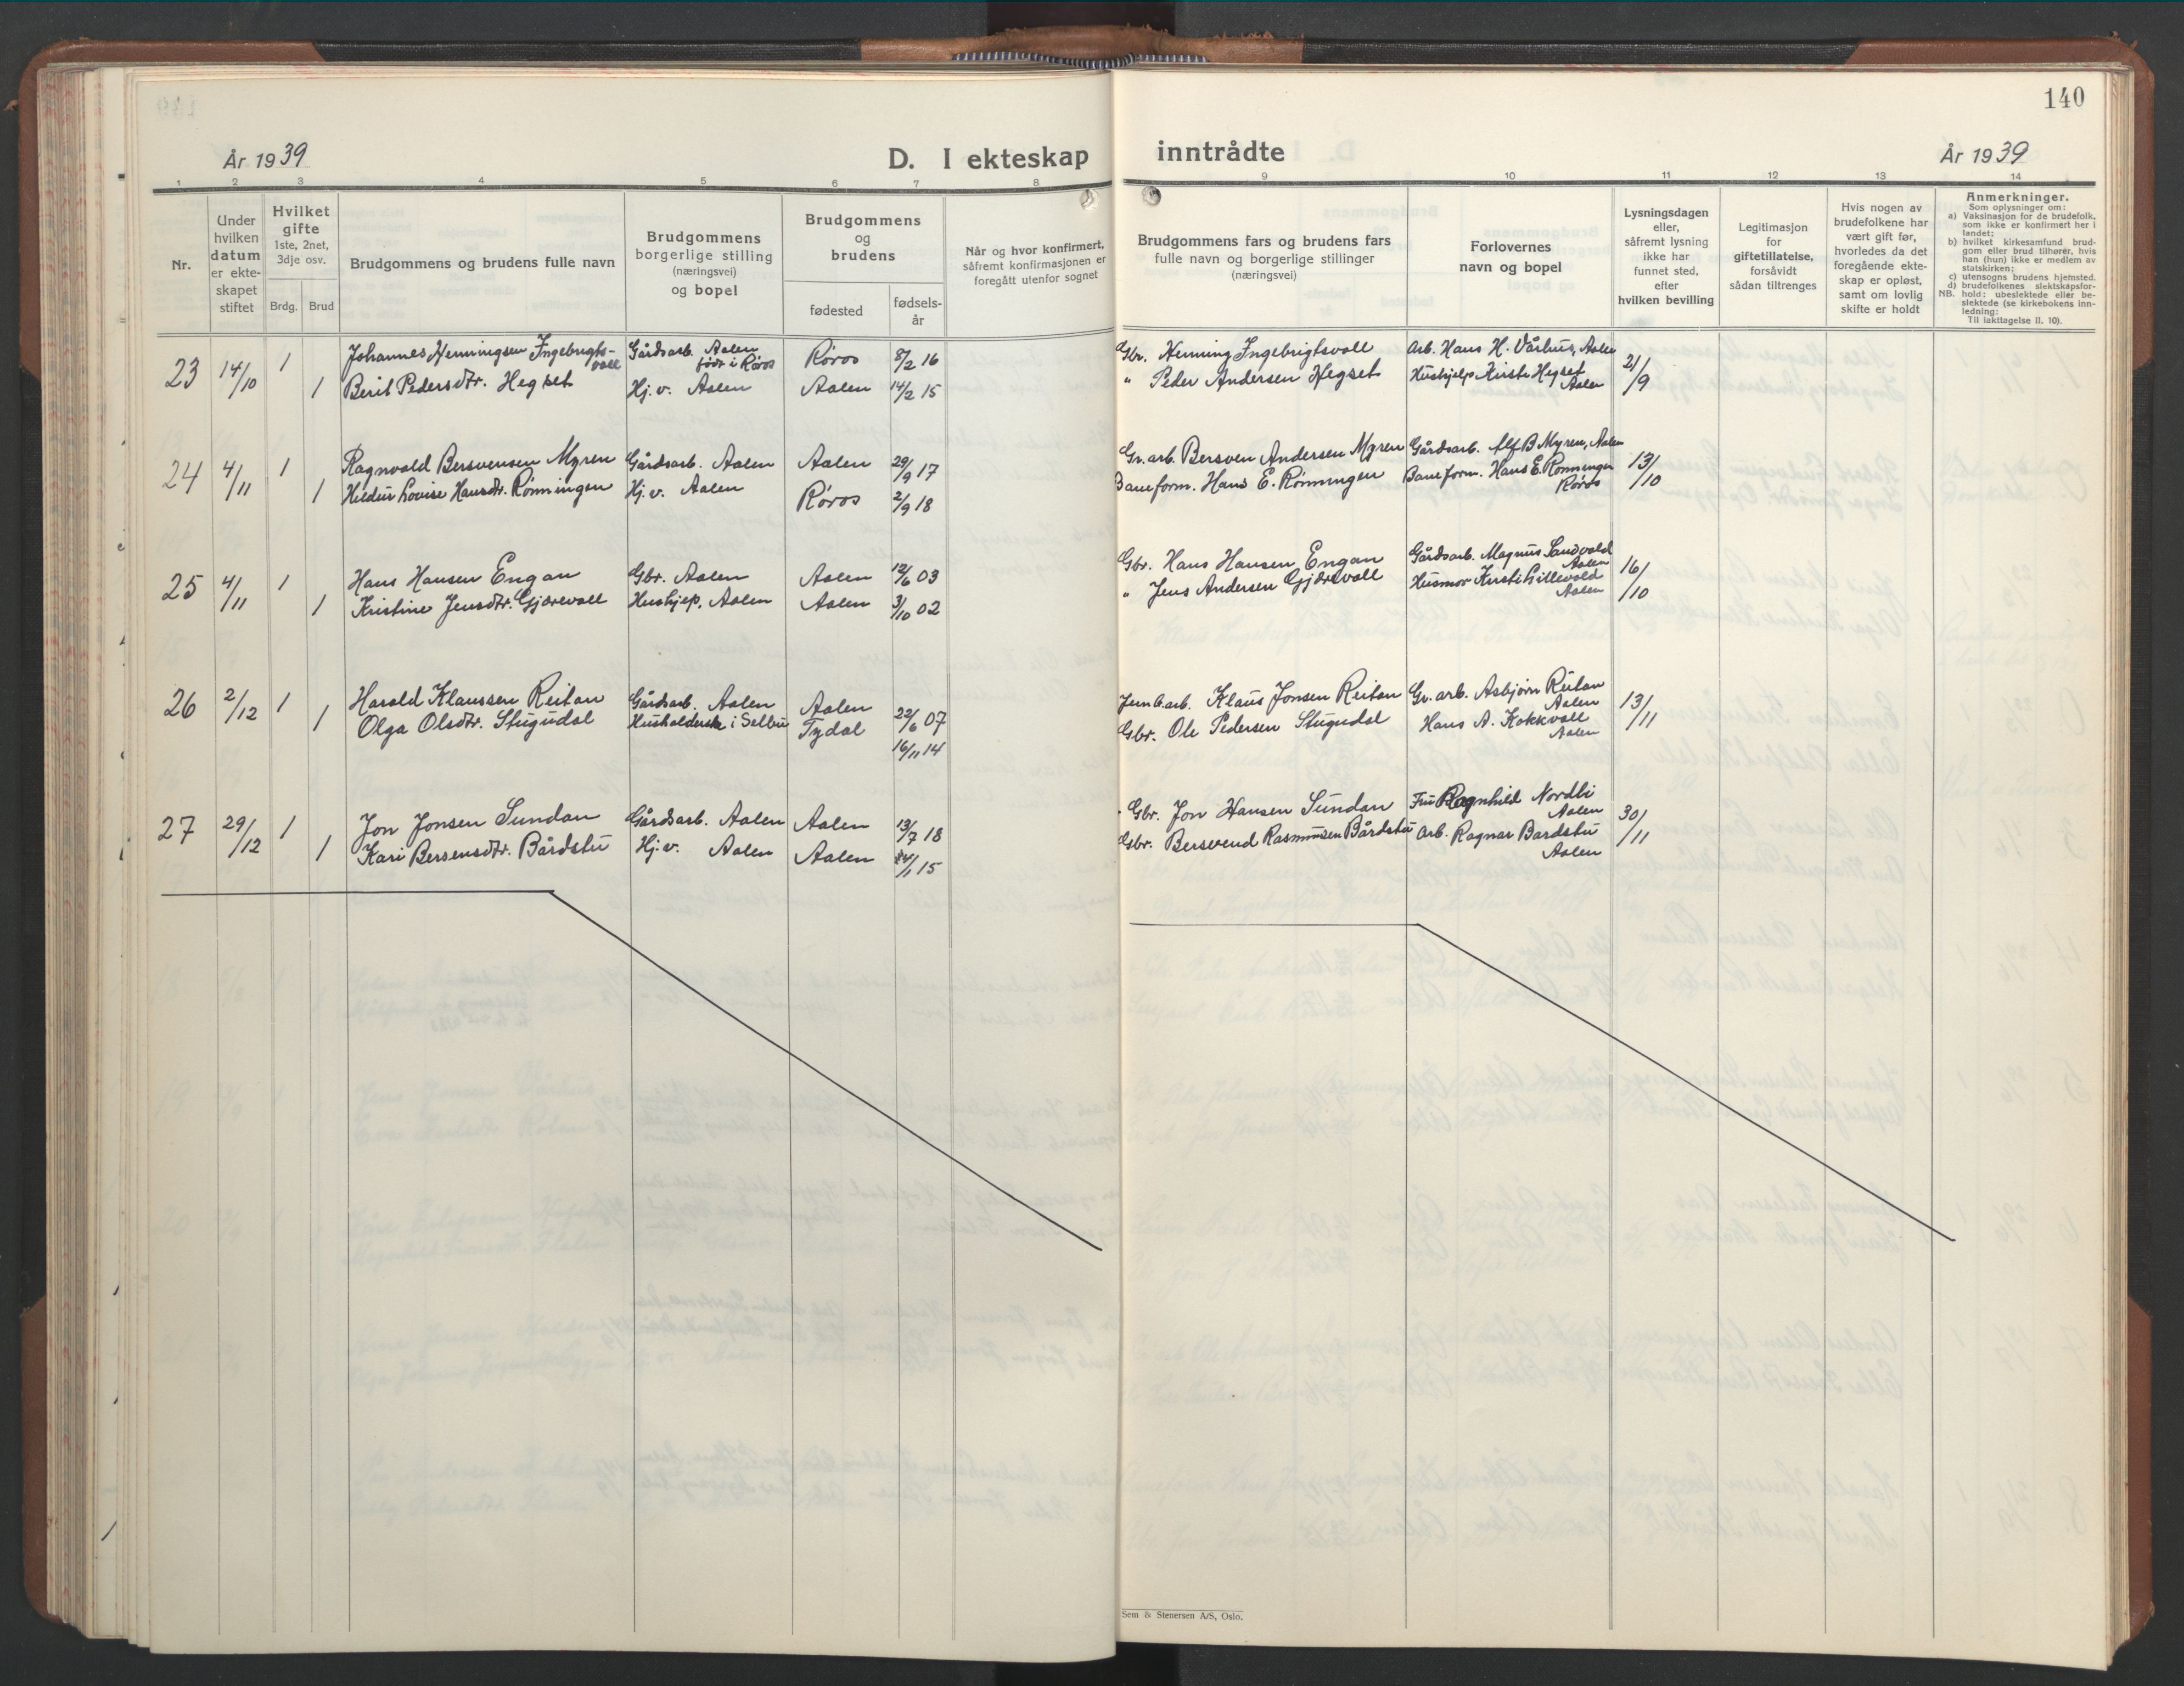 140
År 1939
D. I ekteskap inntrådte
År 1939
1 2 3 4 5 6 7 8 9 10 11 12 13 14
Nr.
Under hvilken datum er ekte-skapet stiftet
Hvilket gifte 1ste, 2net, 3dje osv.
Brdg. Brud
Brudgommens og brudens fulle navn
Brudgommens borgerlige stilling (næringsvei) og bopel
Brudgommens og brudens
fødested
fødsels-år
Når og hvor konfirmert, såfremt konfirmasjonen er foregått utenfor sognet
Brudgommens fars og brudens fars fulle navn og borgerlige stillinger (næringsvei)
Forlovernes navn og bopel
Lysningsdagen eller, såfremt lysning ikke har funnet sted, efter hvilken bevilling
Legitimasjon for giftetillatelse, forsåvidt sådan tiltrenges
Hvis nogen av brudefolkene har vært gift før, hvorledes da det foregående ekte-skap er opløst, samt om lovlig skifte er holdt
Anmerkninger.
Som oplysninger om:
a) Vaksinasjon for de brudefolk, som ikke er konfirmert her i landet;
b) hvilket kirkesamfund brud-gom eller brud tilhører, hvis han (hun) ikke er medlem av statskirken;
c) utensogns brudens hjemsted.
d) brudefolkenes slektskapsfor-hold: ubeslektede eller be-slektede (se kirkebokens inn-ledning:
NB. Til iakttagelse II. 10).
23 14/10 1 Johannes Henningsen Ingebrigts-voll Gårdsarb. Aalen født i Røros Røros 8/2 16 Gbr. Henning Ingebrigtsvoll Arb. Hans H. Vårhus, Aalen 21/9
1 Berit Pedersdtr. Hegset Hj.v. Aalen Aalen 14/2 15 " Peder Andersen Hegset Hushjelp Kirsti Hegset Aalen
24 4/11 1 Ragnvald Bersvensen Myren Gårdsarb. Aalen Aalen 29/9 17 Gr.arb. Bersven Andersen Myren Gårdsarb. Alf B Myren, Aalen 13/10
1 Hildur Lovise Hansdtr. Rønningen Hj.v. Aalen Røros 2/9 18 Baneform. Hans E. Rønningen Baneform. Hans E. Rønningen Røros
25 4/11 1 Hans Hansen Engan Gbr. Aalen Aalen 12/6 03 Gbr. Hans Hansen Engan Gårdsarb. Magnus Sandvold Aalen 16/10
1 Kristine Jensdtr. Gjærevoll Hushjep, Aalen Aalen 3/10 02 " Jens Andersen Gjærevoll Husmor Kirsti Lillevold Aalen
26 2/12 1 Harald Klaussen Reitan Gårdsarb. Aalen Aalen 22/6 07 Jernb.arb. Klaus Jonsen Reitan Gr. arb. Asbjørn Reitan Aalen 13/11
1 Olga Olsdtr. Stugudal Husholderske i Selbu Tydal 16/11 14 Gbr. Ole Pedersen Stugudal Hans A. Kokkvoll Aalen
27 29/12 1 Jon Jonsen Sundan Gårdsarb. Aalen Aalen 13/7 18 Gbr. Jon Hansen Sundan Fru Ragnhild Nordli Aalen 30/11
1 Kari Bersensdtr. Bårdstu Hj.v. Aalen Aalen /1 15 Gbr. Bersvend Rasmussen Bårdstu Arb. Ragnar Bardstu Aalen
Sem & Stenersen A/S, Oslo.